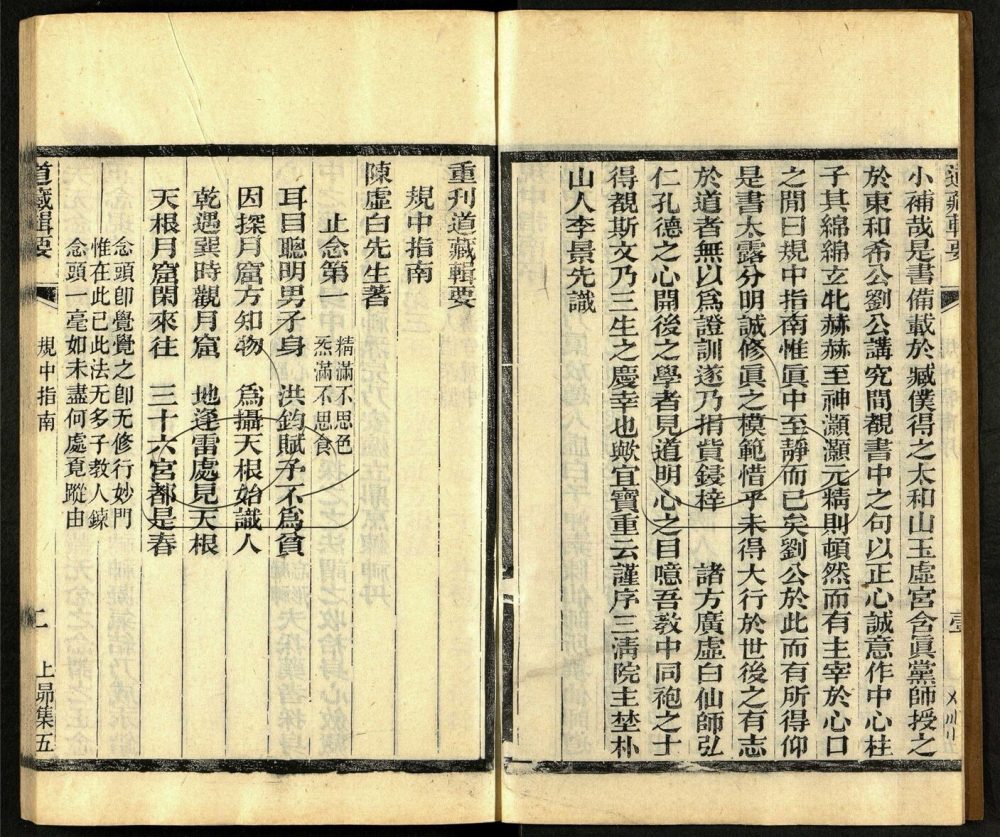 道藏輯要
小補哉是書備載於藏僕得之太和山玉虛宮含眞黨師授之
於東和希公劉公講究間覩書中之句以正心誠意作中心柱
子其綿綿玄牝赫赫至神灝灝元精則頓然而有主宰於心口
之間曰規中指南惟眞中至靜而已矣劉公於此而有所得仰
是書太露分明誠修眞之模範惜乎未得大行於世後之有志
於道者無以爲證訓遂乃捐貲鋟梓 諸方廣虛白仙師弘
仁孔德之心開後之學者見道明心之目噫吾教中同袍之士
得覩斯文乃三生之慶幸也歟宜寶重云謹序三清院主埜朴
山人李景先識
重刊道藏輯要
規中指南
陳虛白先生著
止念第一 精滿不思色
炁滿不思食
耳目聰明男子身 洪鈞賦予不爲貧
因探月窟方知物 爲攝天根始識人
乾遇巽時觀月窟 地逢雷處見天根
天根月窟閑來往 三十六宮都是春
念頭卽覺覺之卽无修行妙門
惟在此已此法无多子教人鍊
念頭一毫如未盡何處覓蹤由
道藏輯要
規中指南
二
上昴集五